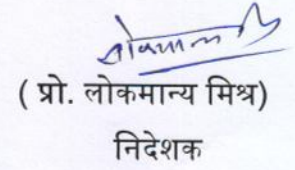 ( प्रो. लोकमान्य मिश्र)
निदेशक